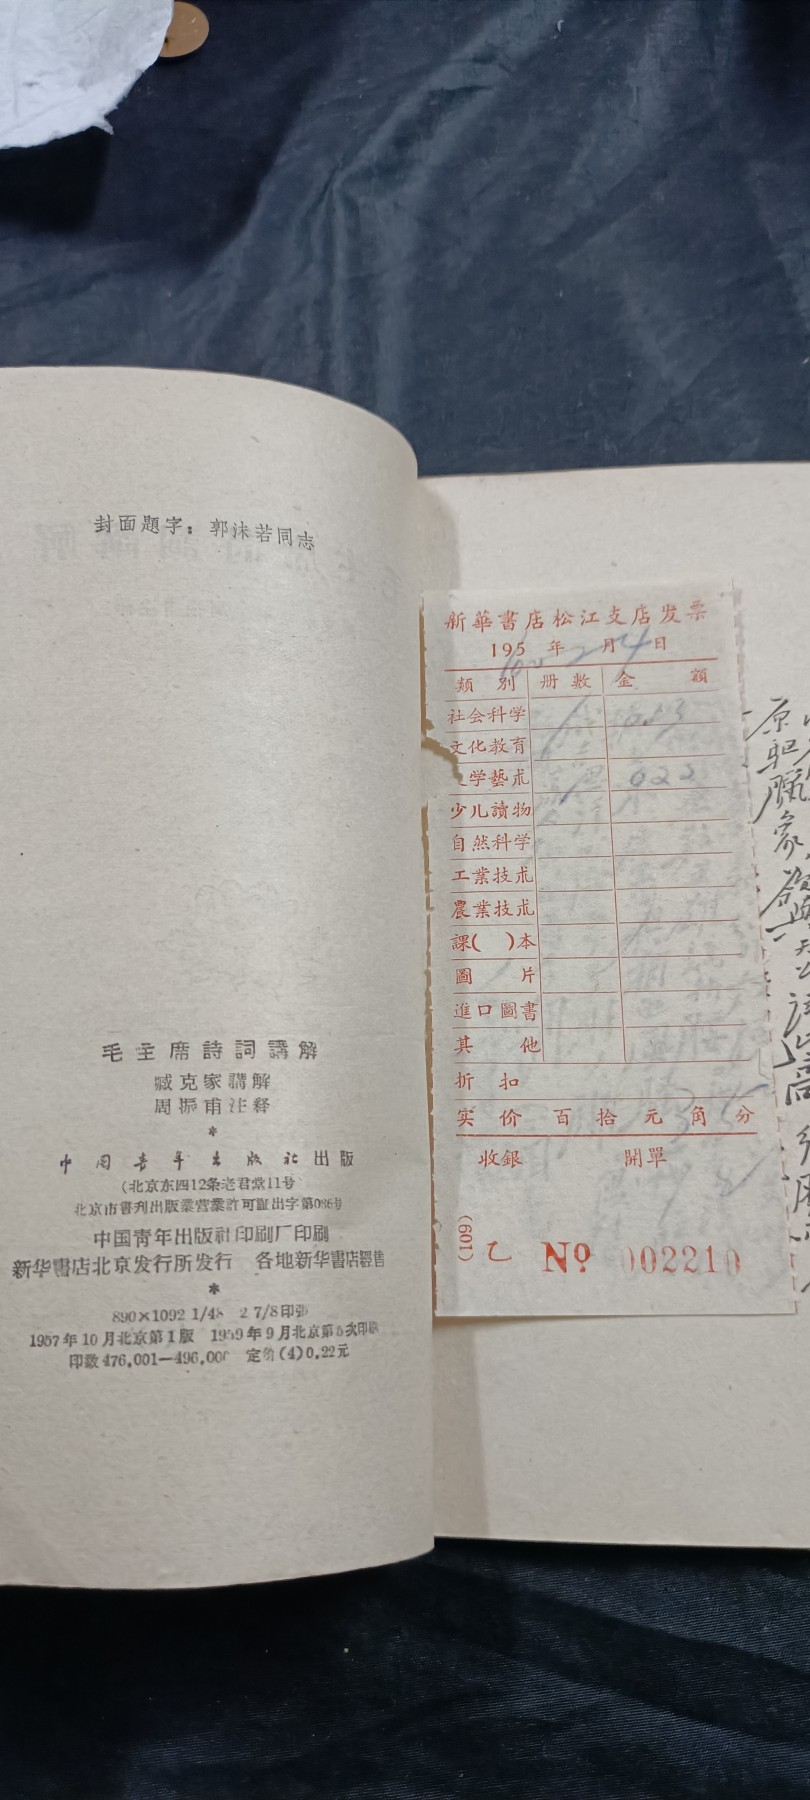 封面題字：郭沫若同志
毛主席詩詞講解
臧克家講解
周振甫注释
*
中国青年出版社出版
(北京东四12条老君堂11号
北京市書刊出版業营業許可証出字第036号
中国青年出版社印刷厂印刷
新华書店北京发行所发行 各地新华書店經售
*
890×1092 1/48 2 7/8印張
1957年10月北京第1版 1959年9月北京第5次印刷
印数476,001—496,000 定价(4)0.22元
新華書店松江支店发票
195 年 月 日
類別 册数 金額
社会科学
文化教育
学藝朮 022
少儿讀物
自然科学
工業技朮
農業技朮
課( )本
圖片
進口圖書
其他
折扣
实价 百 拾 元 角 分
收銀 開單
(601) 乙 № 002210